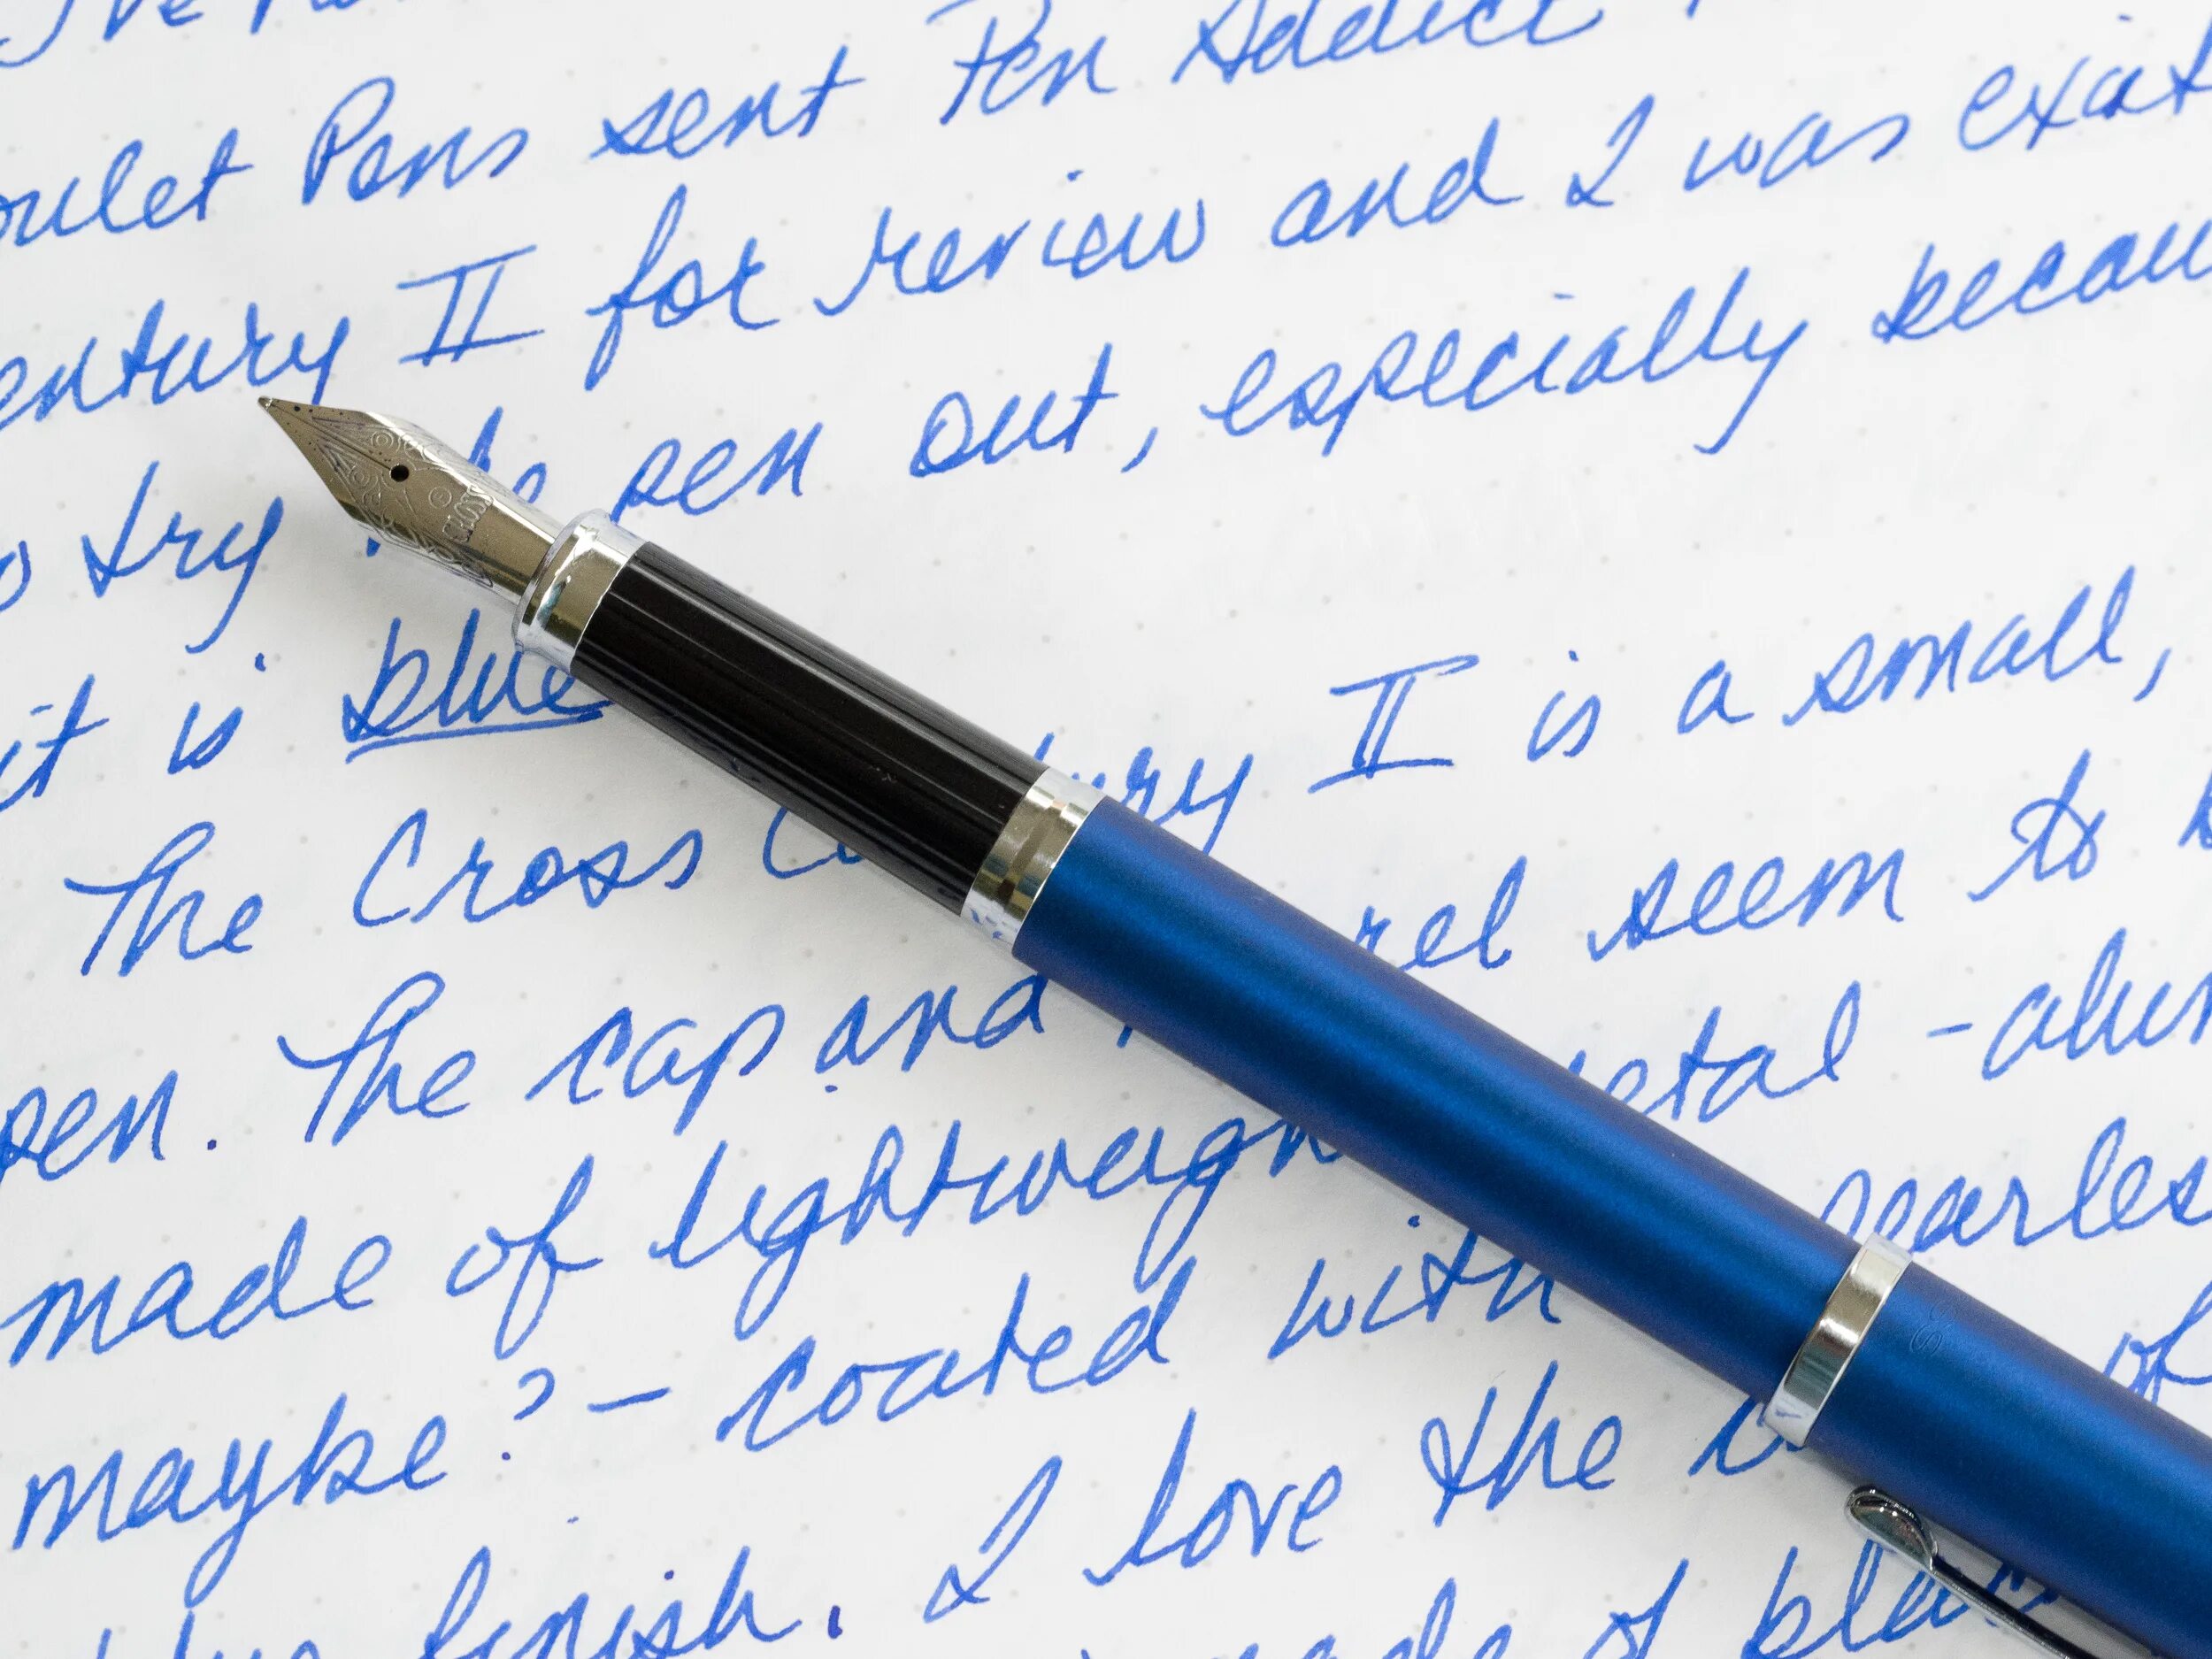 I've
oulet Pens sent Pen Addict
entury II for review and I was excit
o try the pen out, especially becau
it is blue
The Cross Century II is a small,
pen. The cap and rel seem to b
made of lightweigh etal - alum
maybe? - coated with pearles
blue finish. I love the of
made of bla
CROSS